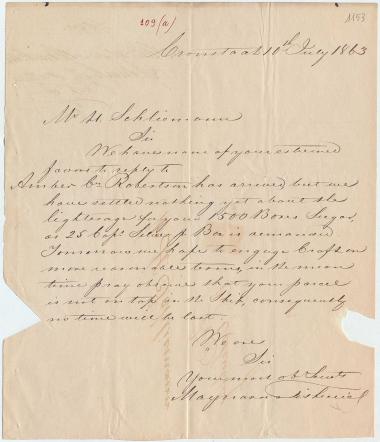 109 (a)
1153
Cronstadt 10th July 1863
Mr H. Schliemann
Sir
We have none of your esteemed
favors to reply to
Amber Cn Robertson has arrived but we
have settled nothing yet about the
lighterage for your 1500 Boxes Sugar,
as 25 Cop. Silver p Box is demanded
Tomorrow we hope to engage Craft on
more reasonable terms, in the mean
time pray observe that your parcel
is not on top in the Ship, consequently
no time will be lost.
We are
Sir
Your most obt Servts
Maynard